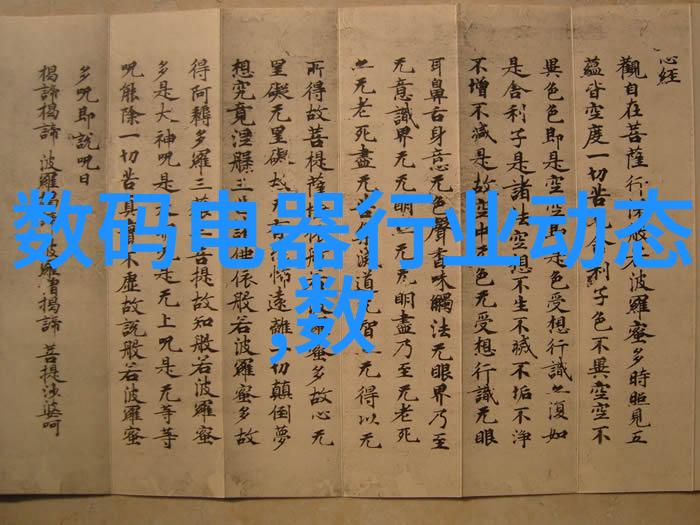 心经
觀自在菩薩行深般若波羅蜜多時照見五
蘊皆空度一切苦厄舍利子色不異空空不
異色色即是空空即是色受想行識亦復如
是舍利子是諸法空想不生不滅不垢不淨
不增不減是故空中无色无受想行識无眼
耳鼻舌身意无色聲香味觸法无眼界乃至
无意識界无无明亦无无明盡乃至无老死
亦无老死盡无苦集滅道无智亦无得以无
所得故菩提薩依般波羅蜜多故心无
罣礙无罣礙故无有怖遠離一切顛倒夢
想究竟涅槃三世諸佛依般若波羅蜜多故
得阿耨多羅三藐三菩提故知般若波羅蜜
多是大神呪是大呪是无上呪是无等等
呪能除一切苦真實不虛故說般若波羅蜜
多呪即說呪曰
揭諦揭諦 波羅揭諦 波羅僧揭諦 菩提娑婆呵
数码电器行业动态
,数